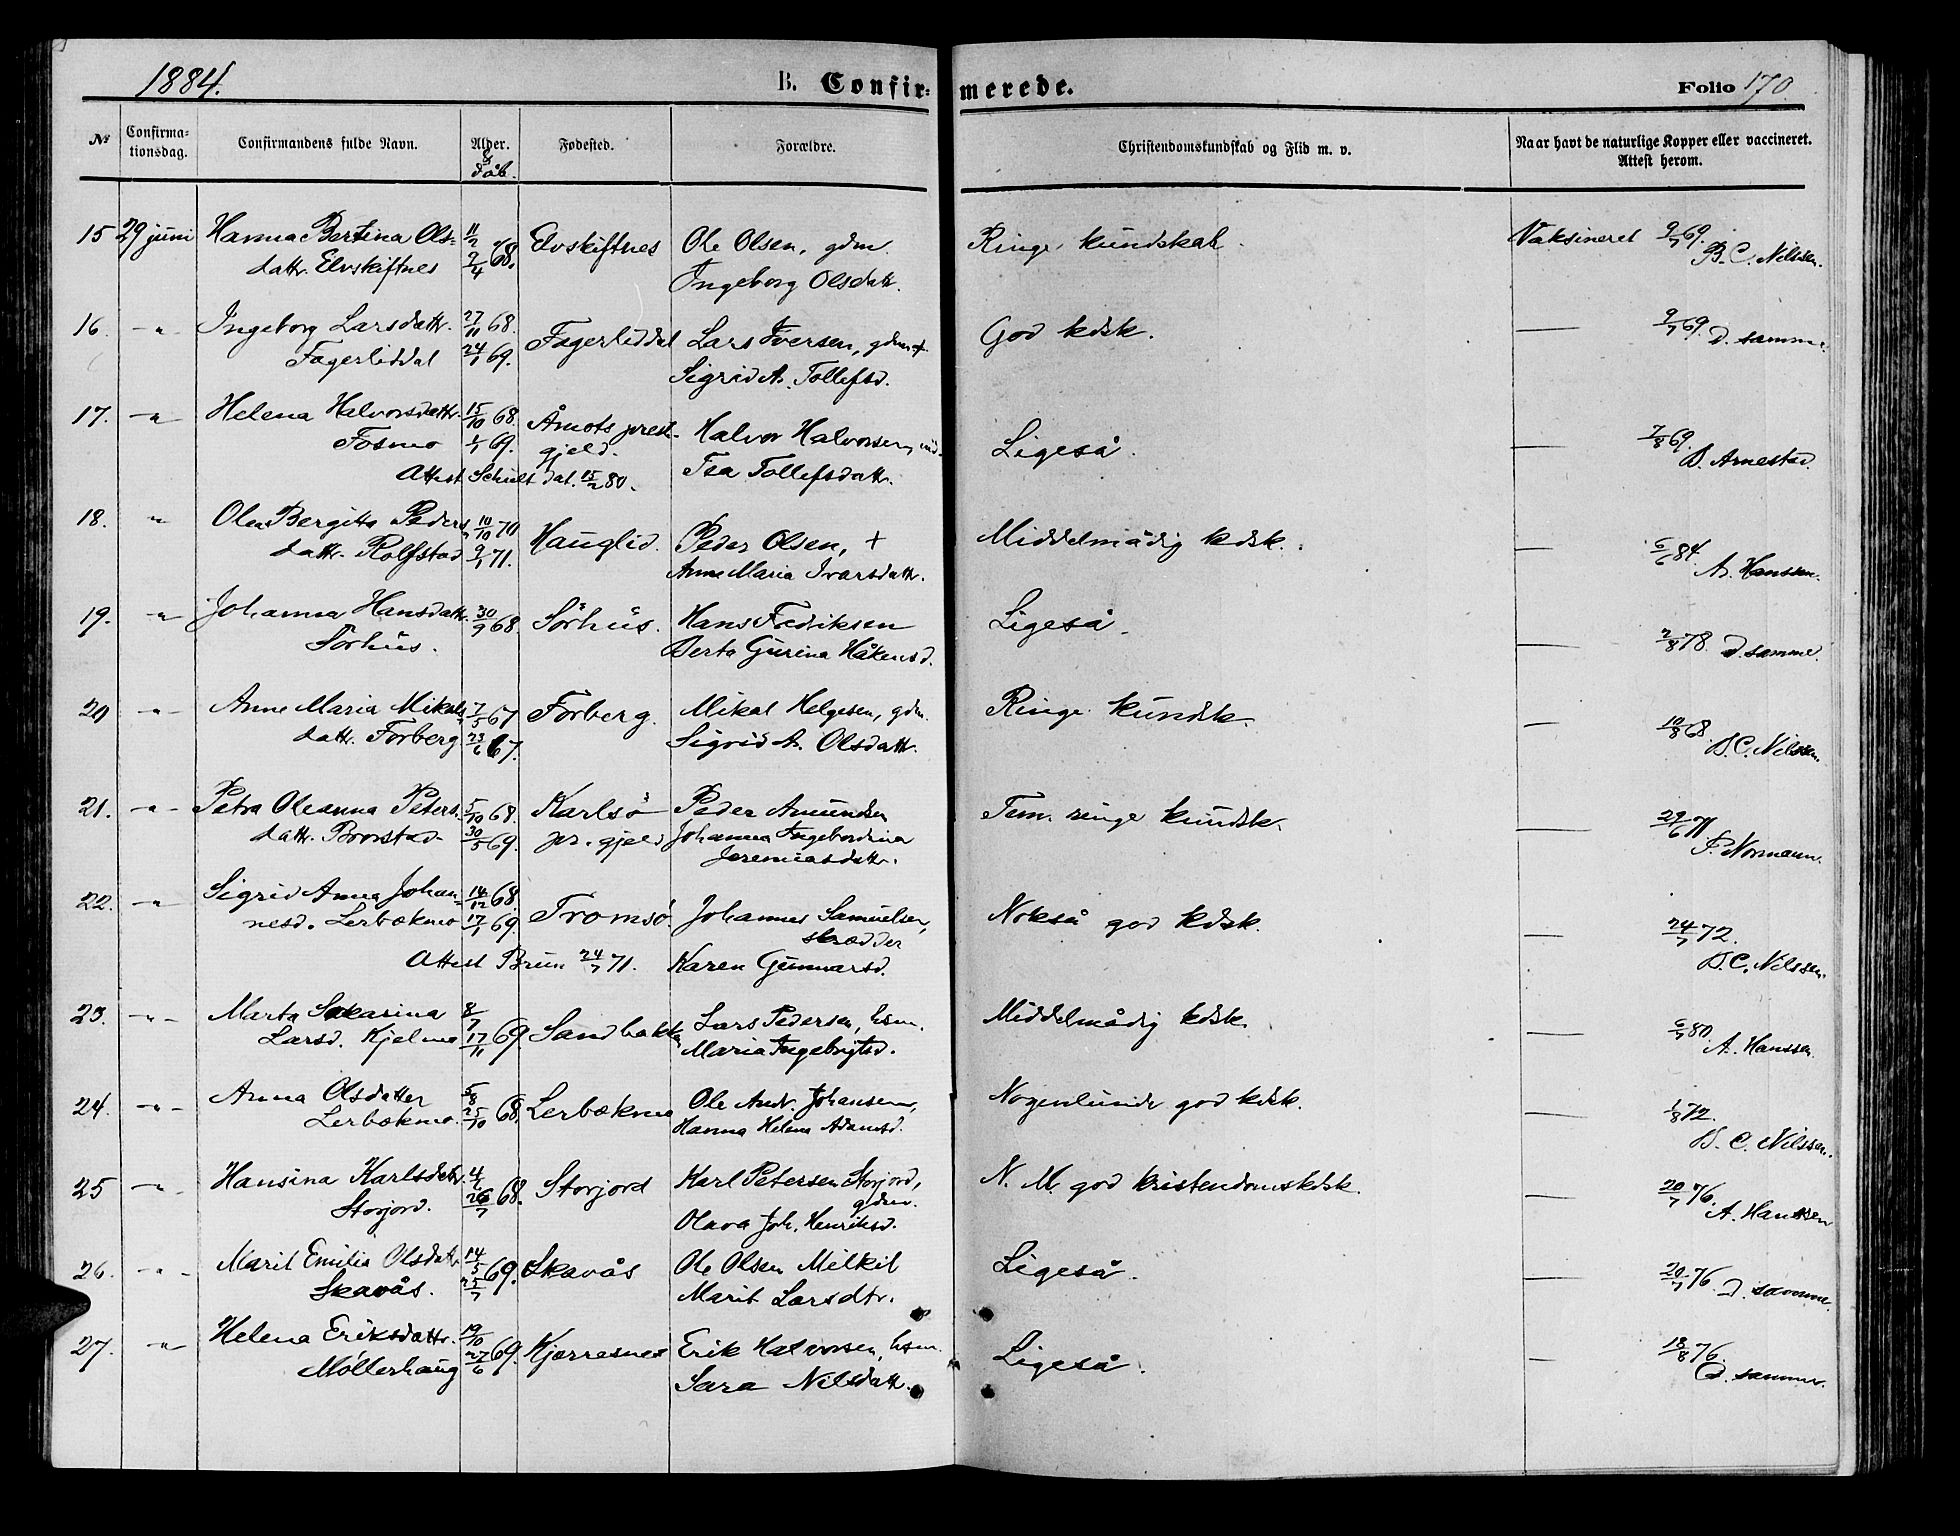 1884.
B. Confirmerede.
Folio 170
Nr
Confirmationsdag.
Confirmandens fulde Navn.
Alder. & dåb.
Fødested.
Forældre.
Christendomskundskab og Flid m. v.
Naar havt de naturlige Kopper eller vaccineret. Attest herom.
15 29 juni Hanna Bertina Ols= 11/2 68. Elvskiftnes Ole Olsen, gdm. Ringe kundskab. Vaksineret 9/7 69.
datt. Elvskiftnes 9/4 Ingeborg Olsdatt. B. C. Nilssen.
16. -"- Ingeborg Larsdattr. 27/11 68. Fagerliddal Lars Iversen, gdm + God kdsk. — 9/7 69. d. samme.
Fagerliddal 24/1 69. Sigrid A. Tollefsd.
17. -"- Helena Halvorsdattr. 15/10 68. Åmots prest- Halvor Halvorsen, Ligeså. — 7/8 69.
Fosmo 1/1 69. gjeld. Isa Tollefsdatt. B. Arnestad.
Attest Schult dat. 15/2 80.
18. " Olea Bergitta Peders 10/10 70 Hauglid. Peder Olsen, + Middelmådig kdsk. — 6/6 84.
datt. Rolfstad 9/1 71. Anne Maria Ivarsdatt. A. Hanssen.
19. " Johanna Hansdatt. 30/9 68. Sørhus. Hans Fredriksen Ligeså. — 7/8 78. d. samme.
Sørhus. Berta Gurina Håkensd.
20 -"- Anne Maria Mikals 7/5 67 Forberg. Mikal Helgesen, gdm. Ringe kundsk. — 10/8 68.
datt. Forberg 23/6 67. Sigrid A. Olsdatt. B. C. Nilssen.
21. -"- Petra Oleanna Peters. 5/10 68. Karlsö Peder Amundsen Tem. ringe kundsk. — 29/6 71.
datt. Brorstad 30/5 69. pr. gjeld Johanna Ingebordina P. Normann.
Jeremiasdattr.
22. -"- Sigrid Anna Johan= 14/12 68. Tromsö Johannes Samuelsen, Nokså god kdsk. — 24/7 72.
nesd. Lerbækmo 17/1 69. skrædder
Attest Brun 24/7 71. Karen Gunnarsd. B. C. Nilssen.
23. -"- Marta Sakarina 8/7 69. Sandbakken Lars Pedersen, hsm. Middelmådig kdsk. — 6/7 80.
Larsd. Kjelmo 17/11 Maria Ingebrigtsd. A. Hanssen.
24. -"- Anna Olsdatter 5/8 68. Lerbækmo Ole Andr. Johansen, Nogenlunde god kdsk. — 1/8 72.
Lerbækmo. 25/10 Hanna Helena Adamsd. B. C. Nilssen.
25 -"- Hansina Karlsdatr. 68. Storjord Karl Petersen Storjord, N. M. god kristendomskdsk. — 20/7 76.
Storjord. 26/7 gdm. A. Hanssen
Olava Joh. Henriksd.
26. -"- Marit Emilia Olsdatr. 14/5 69. Skavås Ole Olsen Milkil Ligeså. — 20/7 76. d. samme.
Skavås. 25/7 Marit Larsdtr.
27. -"- Helena Eriksdattr. 19/10 69. Kjærresnes Erik Halvorsen, hsm. Ligeså. — 18/8 76. d. samme.
Møllerhaug 27/6 Sara Nilsdatt.